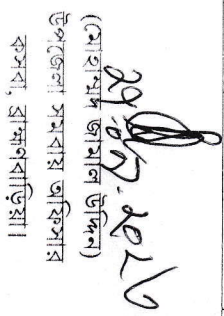 ২৭.০৭.২০২৬
(মোহাম্মদ জামাল উদ্দিন)
উপজেলা সমবায় অফিসার
কসবা, ব্রাহ্মণবাড়িয়া।